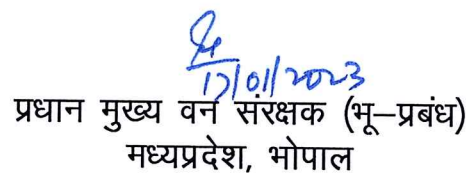 17/01/2023
प्रधान मुख्य वन संरक्षक (भू–प्रबंध)
मध्यप्रदेश, भोपाल